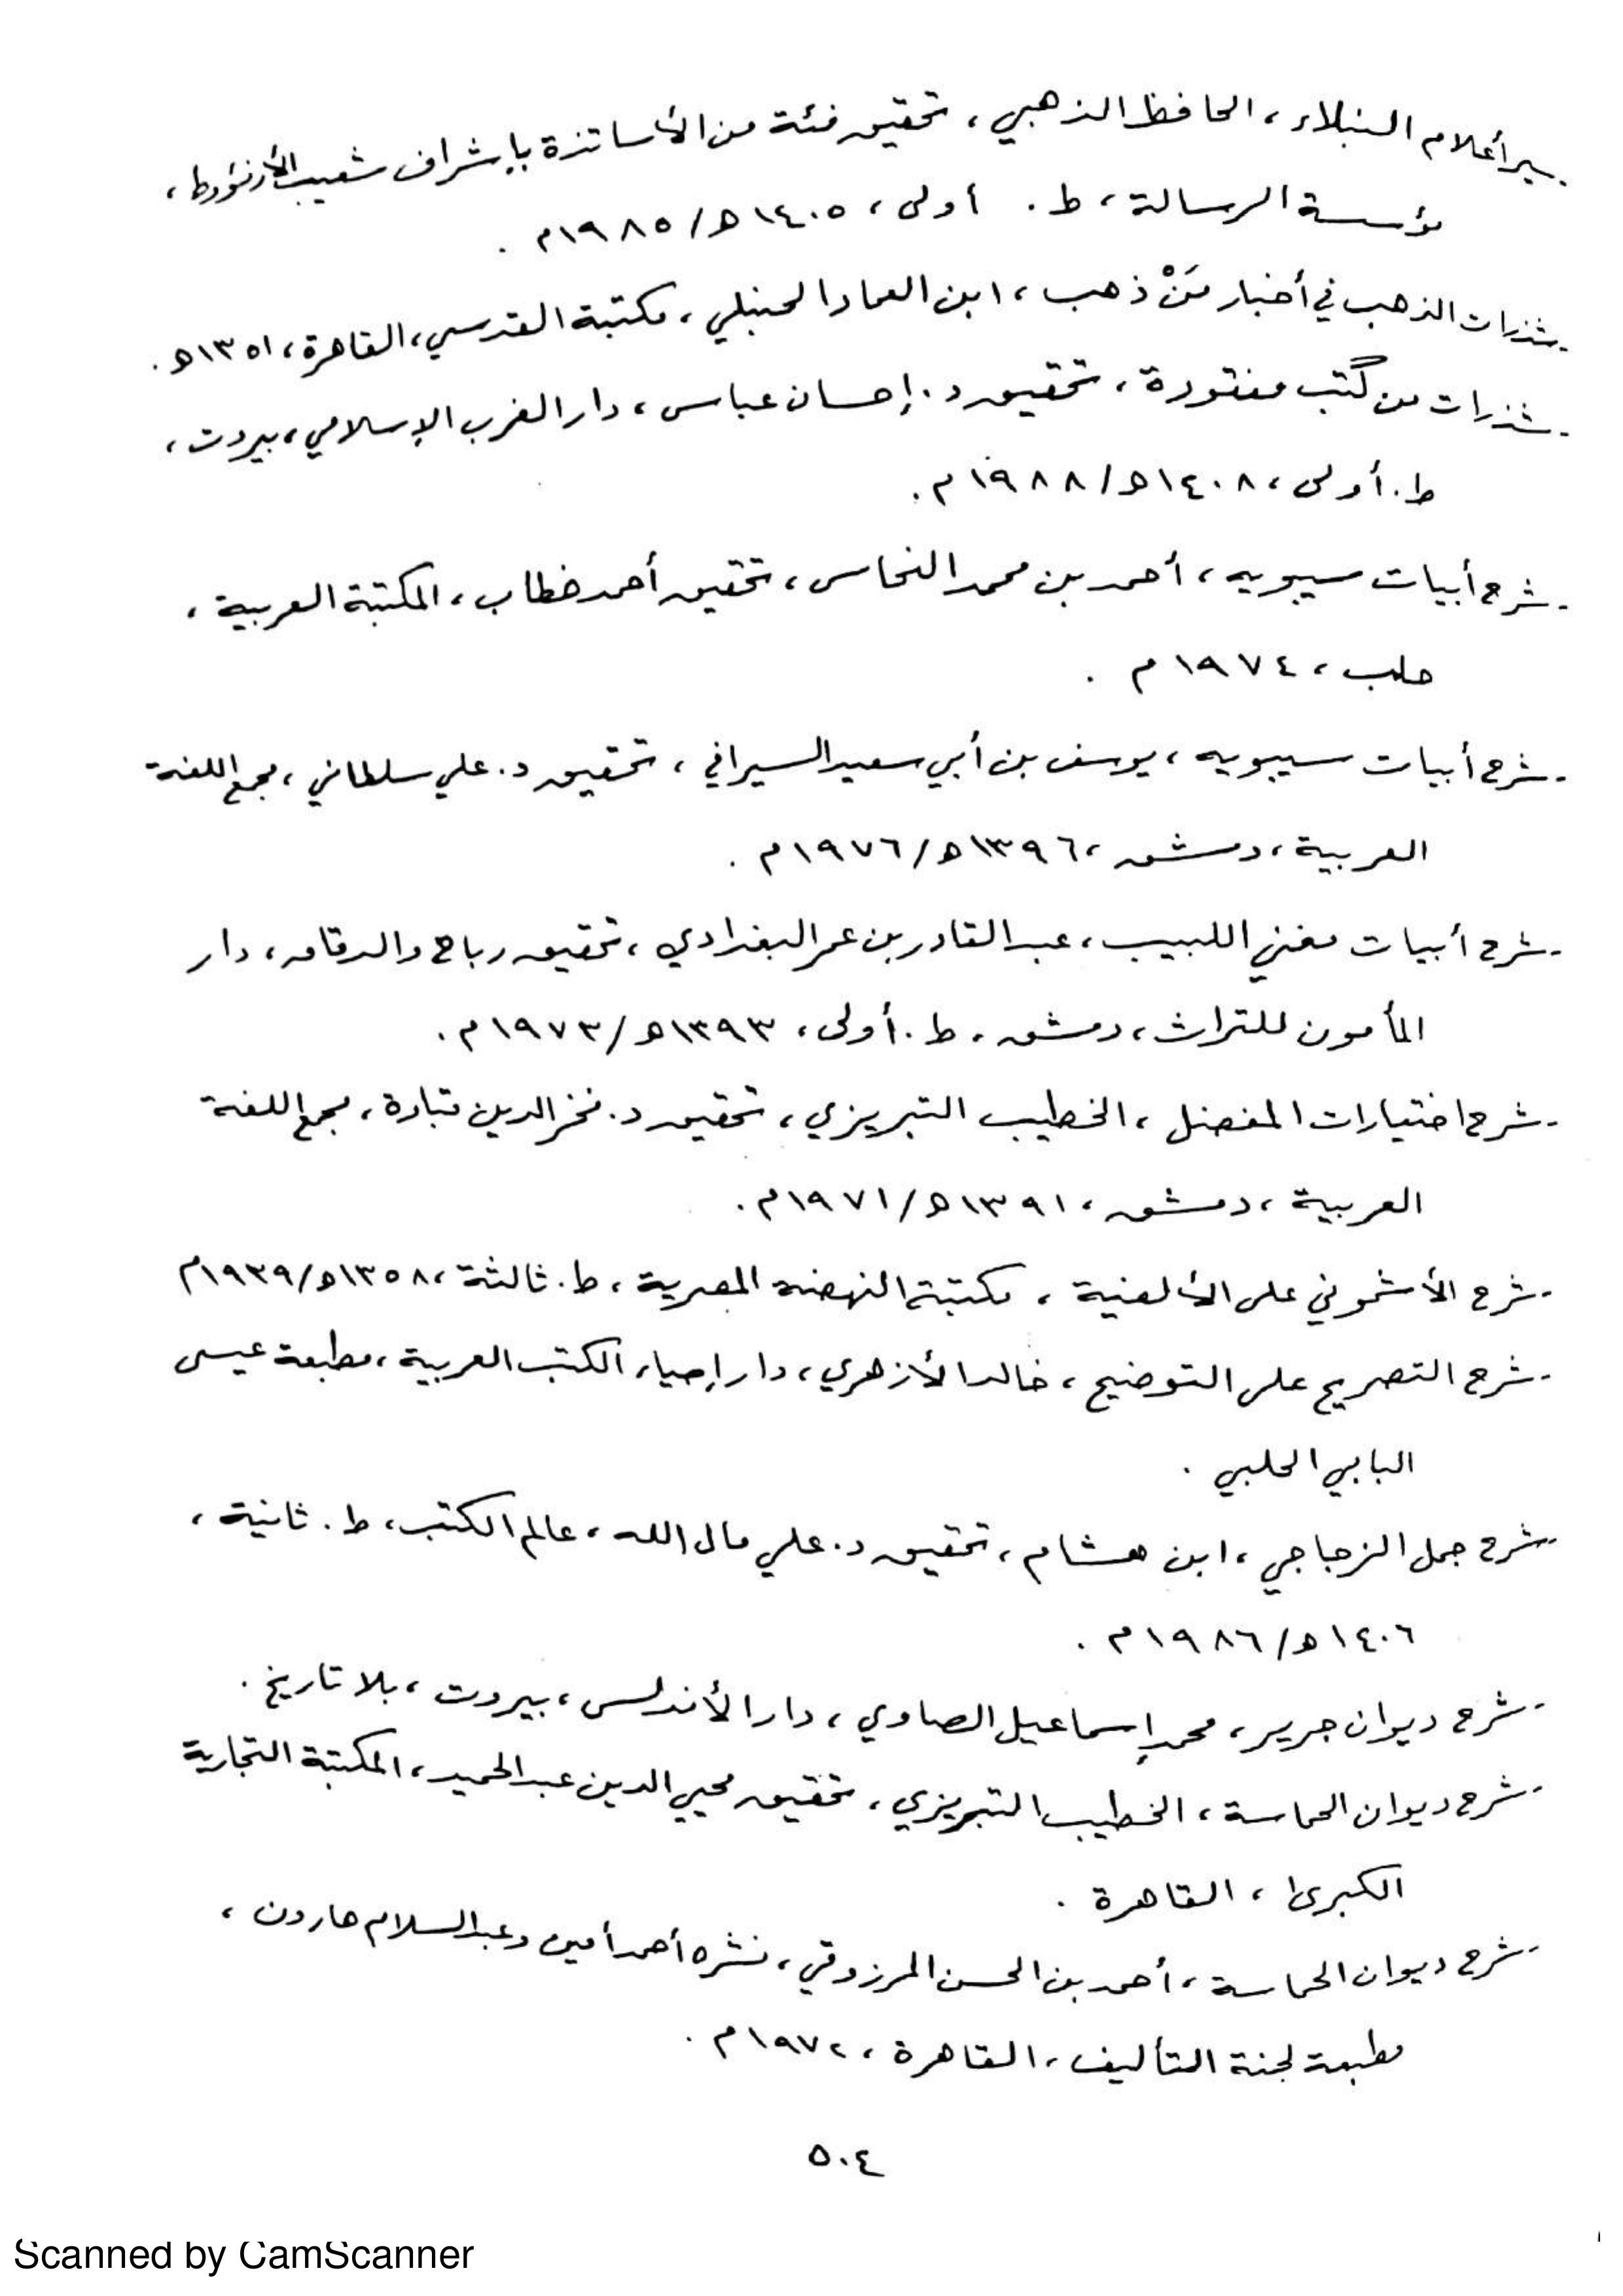 - سير أعلام النبلاء، الحافظ الذهبي، تحقيق فئة من الأساتذة بإشراف شعيب الأرنؤوط،
مؤسسة الرسالة، ط. أولى، ١٤٠٥ﻫ/١٩٨٥م.
- شذرات الذهب في أخبار مَنْ ذهب، ابن العماد الحنبلي، مكتبة القدسي، القاهرة، ١٣٥١ﻫ.
- شذرات من كُتب مفقودة، تحقيق د. إحسان عباس، دار الغرب الإسلامي، بيروت،
ط. أولى، ١٤٠٨ﻫ/١٩٨٨م.
- شرح أبيات سيبويه، أحمد بن محمد النحاس، تحقيق أحمد خطاب، المكتبة العربية،
حلب، ١٩٧٤م.
- شرح أبيات سيبويه، يوسف بن أبي سعيد السيرافي، تحقيق د. علي سلطاني، مجمع اللغة
العربية، دمشق، ١٣٩٦ﻫ/١٩٧٦م.
- شرح أبيات مغني اللبيب، عبد القادر بن عمر البغدادي، تحقيق رباح والدقاق، دار
المأمون للتراث، دمشق. ط. أولى، ١٣٩٣ﻫ/١٩٧٣م.
- شرح اختيارات المفضل، الخطيب التبريزي، تحقيق د. فخر الدين قباوة، مجمع اللغة
العربية، دمشق، ١٣٩١ﻫ/١٩٧١م.
- شرح الأشموني على الألفية، مكتبة النهضة المصرية، ط. ثالثة، ١٣٥٨ﻫ/١٩٣٩م
- شرح التصريح على التوضيح، خالد الأزهري، دار إحياء الكتب العربية، مطبعة عيسى
البابي الحلبي.
- شرح جمل الزجاجي، ابن هشام، تحقيق د. علي مال الله، عالم الكتب، ط. ثانية،
١٤٠٦ﻫ/١٩٨٦م.
- شرح ديوان جرير، محمد إسماعيل الصاوي، دار الأندلس، بيروت، بلا تاريخ.
- شرح ديوان الحماسة، الخطيب التبريزي، تحقيق محيي الدين عبد الحميد، المكتبة التجارية
الكبرى، القاهرة.
- شرح ديوان الحماسة، أحمد بن الحسن المرزوقي، نشره أحمد أمين وعبد السلام هارون،
مطبعة لجنة التأليف، القاهرة، ١٩٧٢م.
٥٠٤
Scanned by CamScanner